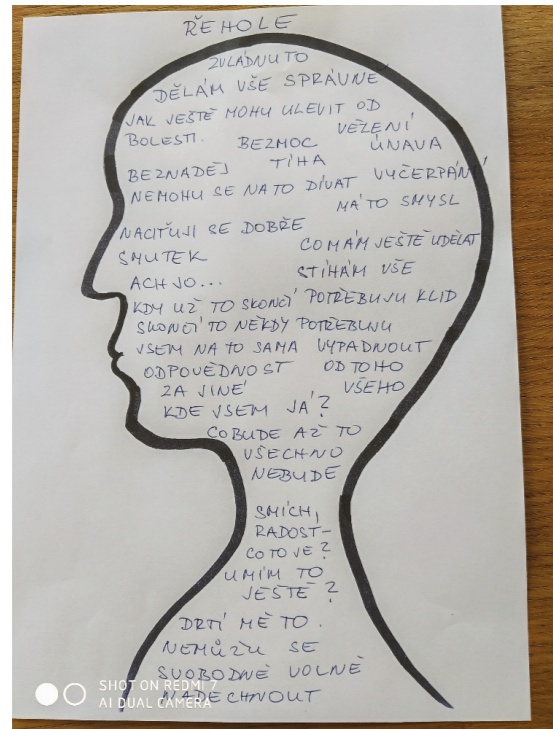 ŘEHOLE
ZVLÁDNU TO
DĚLÁM VŠE SPRÁVNĚ
JAK JEŠTĚ MOHU ULEVIT OD
BOLESTI.
VĚZENÍ
BEZMOC
ÚNAVA
BEZNADĚJ
TÍHA
VYČERPÁNÍ
NEMOHU SE NA TO DÍVAT
MÁ TO SMYSL
NACIŤUJI SE DOBŘE
CO MÁM JEŠTĚ UDĚLAT
SMUTEK
STÍHÁM VŠE
ACH JO...
KDY UŽ TO SKONČÍ POTŘEBUJU KLID
SKONČÍ TO NĚKDY POTŘEBUJU
JSEM NA TO SAMA VYPADNOUT
ODPOVĚDNOST OD TOHO
ZA JINÉ VŠEHO
KDE JSEM JÁ?
CO BUDE AŽ TO
VŠECHNO
NEBUDE
SMÍCH,
RADOST-
CO TO JE?
UMÍM TO
JEŠTĚ?
DRTÍ MĚ TO.
NEMŮŽU SE
SVOBODNĚ VOLNĚ
NADECHNOUT
SHOT ON REDMI 7
AI DUAL CAMERA